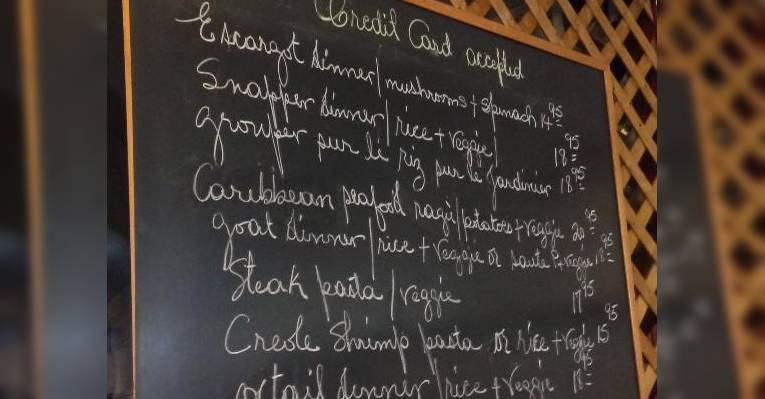 Credit Card accepted
Escargot dinner/mushrooms + spinach 14 95
Snapper dinner/rice + veggie 18 95
grouper pur li riz pur le jardinier 18 95
Caribbean seafood ragu/potatoes + veggie 20 95
goat dinner/rice + veggie or saute P + veggie 18 95
Steak pasta/veggie 17 95
Creole shrimp pasta or rice + veggie 15 95
oxtail dinner/rice + veggie 18 95